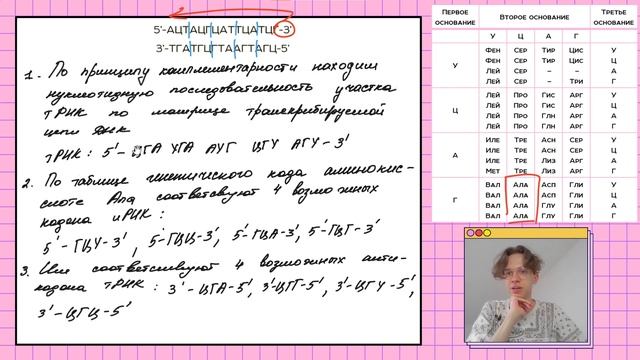 5'-АЦТАЦГЦАТТЦАТЦГ-3'
3'-ТГАТГЦГТААГТАГЦ-5'
1. По принципу комплементарности находим
нуклеотидную последовательность участка
тРНК по матрице транскрибируемой
цепи ДНК
тРНК: 5'- ЦГА УГА АУГ ЦГУ АГУ - 3'
2. По таблице генетического кода аминокис-
слоте Ала соответсвуют 4 возможных
кодона иРНК:
5'-ГЦУ-3', 5'-ГЦЦ-3', 5'-ГЦА-3', 5'-ГЦГ-3'
3. Им соответсвуют 4 возможных анти-
кодона тРНК: 3'-ЦГА-5', 3'-ЦГГ-5', 3'-ЦГУ-5',
3'-ЦГЦ-5'
Первое основание Второе основание Третье основание
У Ц А Г
У
Фен Сер Тир Цис У
Фен Сер Тир Цис Ц
Лей Сер – – А
Лей Сер – Три Г
Ц
Лей Про Гис Арг У
Лей Про Гис Арг Ц
Лей Про Глн Арг А
Лей Про Глн Арг Г
А
Иле Тре Асн Сер У
Иле Тре Асн Сер Ц
Иле Тре Лиз Арг А
Мет Тре Лиз Арг Г
Г
Вал Ала Асп Гли У
Вал Ала Асп Гли Ц
Вал Ала Глу Гли А
Вал Ала Глу Гли Г